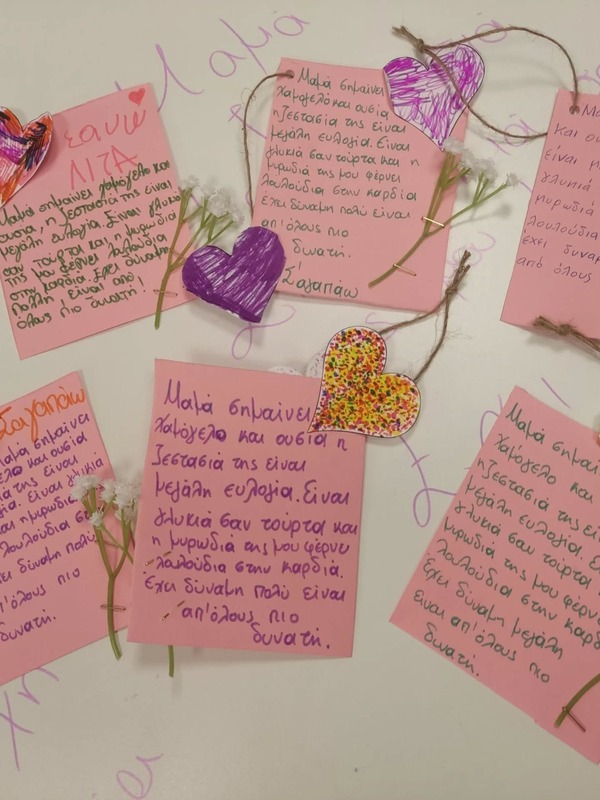 Μαμά
Σαγαπώ
ΛΙΤΑ
Μαμά σημαίνει χαμόγελο και
ουσία, η ζεστασιά της είναι
μεγάλη ευλογία. Είναι γλυκιά
σαν τούρτα και η μυρωδιά
της μου φέρνει λουλούδια
στην καρδιά. Έχει δύναμη
πολλή είναι από
όλους πιο δυνατή!
Μαμά σημαίνει
χαμόγελο και ουσία
η ζεστασιά της είναι
μεγάλη ευλογία. Είναι
γλυκιά σαν τούρτα και η
μυρωδιά της μου φέρνει
λουλούδια στην καρδιά
έχει δύναμη πολύ είναι
απ'όλους πιο
δυνατή.
Σ'αγαπάω
και ου
είναι μ
γλυκιά
μυρωδιά
λουλούδια
έχει δυναμ
από όλους
Σαγαπάω
μαμά σημαίνει
και ουσία
της είναι
είναι γλυκιά
και η μυρωδιά
λουλούδια
δύναμη πολύ
όλους πιο
δυνατή.
Μαμά σημαίνει
χαμόγελο και ουσία η
ζεστασιά της είναι
μεγάλη ευλογία. Είναι
γλυκιά σαν τούρτα και
η μυρωδιά της μου φέρνει
λουλούδια στην καρδιά.
Έχει δύναμη πολύ είναι
απ'όλους πιο
δυνατή.
Μαμά σημαί
χαμόγελο και
η ζεστασιά της εί
μεγάλη ευλογία. Ε
γλυκιά σαν τούρτα
μυρωδιά της μου φέρν
λουλούδια στην καρδ
έχει δύναμη μεγάλη
είναι απ'όλους πιο
δυνατή.